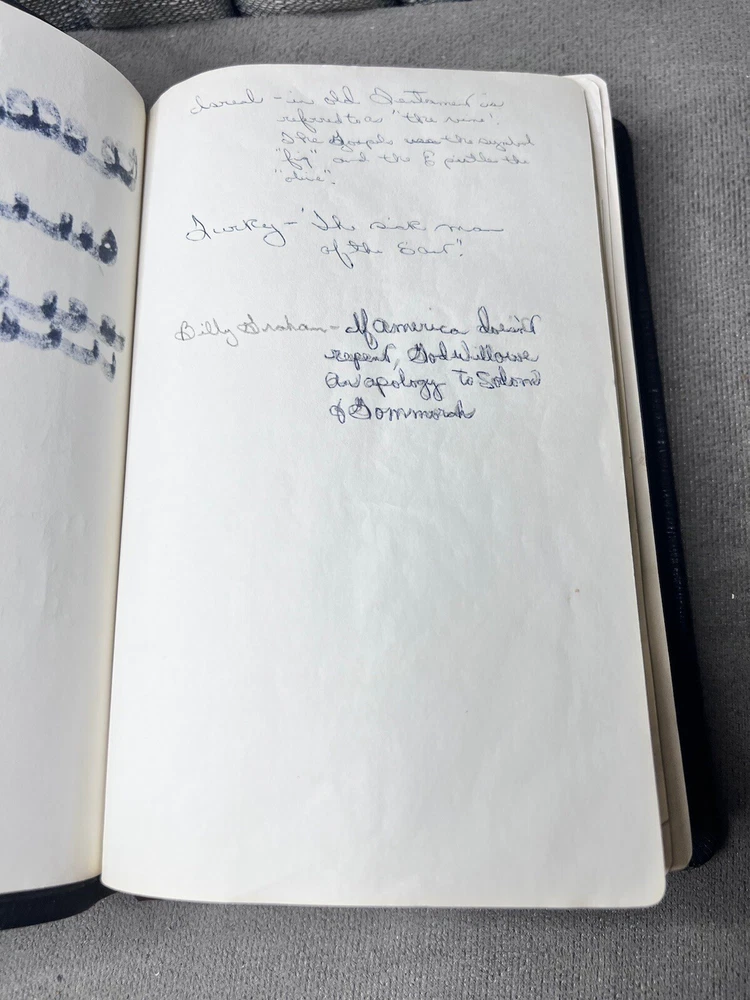 Isreal - in old Testament is
referred to as "the vine".
The Gospels use the symbol
"fig" and the Epistles the
"olive".
Turkey - "The sick man
of the East."
Billy Graham - If America doesn't
repent, God will owe
an apology to Sodom
& Gommorah